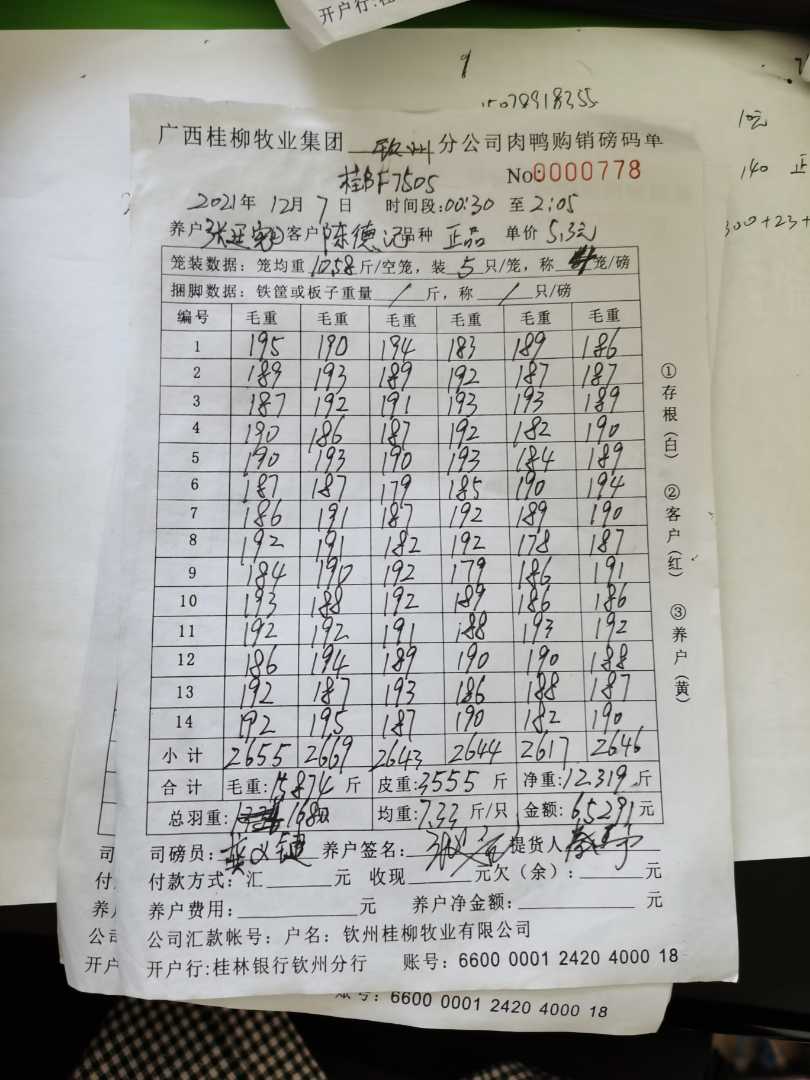 开户行:桂
15078918355
10元
140 正
300+23+
广西桂柳牧业集团 钦州 分公司肉鸭购销磅码单
桂BF7505 No 0000778
2021年 12月 7 日 时间段:00:30 至 2:05
养户 客户 陈德记 品种 正品 单价 5.3元
笼装数据: 笼均重 10.58 斤/空笼, 装 5 只/笼, 称 4 笼/磅
捆脚数据: 铁筐或板子重量 / 斤, 称 / 只/磅
编号 毛重 毛重 毛重 毛重 毛重 毛重
1 195 190 194 183 189 186
2 189 193 189 192 187 187
3 187 192 191 193 193 189
4 190 186 187 192 182 190
5 190 193 190 193 184 189
6 187 187 179 185 190 194
7 186 191 187 192 189 190
8 192 191 182 192 178 187
9 184 190 192 179 186 191
10 193 188 192 189 186 186
11 192 192 191 188 193 192
12 186 194 189 190 190 188
13 192 187 193 186 188 187
14 192 195 187 190 182 190
小计 2655 2669 2643 2644 2617 2646
合计 毛重:15874 斤 皮重:3555 斤 净重:12319 斤
总羽重: 1680 均重:7.33 斤/只 金额: 65291 元
司磅员: 养户签名: 提货人
付款方式: 汇 元 收现 元欠(余): 元
养户费用: 元 养户净金额: 元
公司汇款帐号: 户名: 钦州桂柳牧业有限公司
开户行:桂林银行钦州分行 账号: 6600 0001 2420 4000 18
①存根(白) ②客户(红) ③养户(黄)
司
付
养
公司
开户
账号: 6600 0001 2420 4000 18